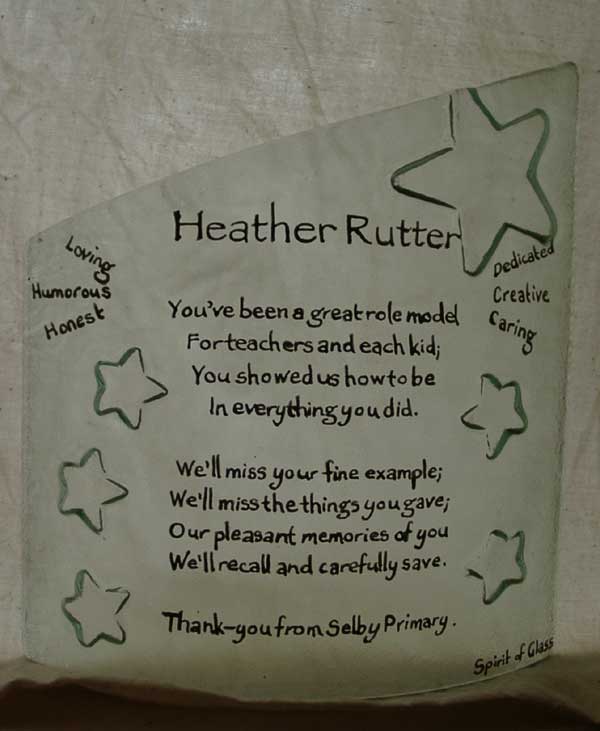 Heather Rutter
Loving
Humorous
Honest
Dedicated
Creative
Caring
You've been a great role model
For teachers and each kid;
You showed us how to be
In everything you did.
We'll miss your fine example;
We'll miss the things you gave;
Our pleasant memories of you
We'll recall and carefully save.
Thank-you from Selby Primary.
Spirit of Glass